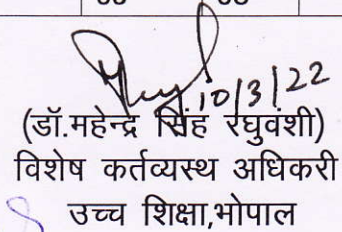 10/3/22
(डॉ.महेन्द्र सिंह रघुवंशी)
विशेष कर्तव्यस्थ अधिकरी
उच्च शिक्षा,भोपाल